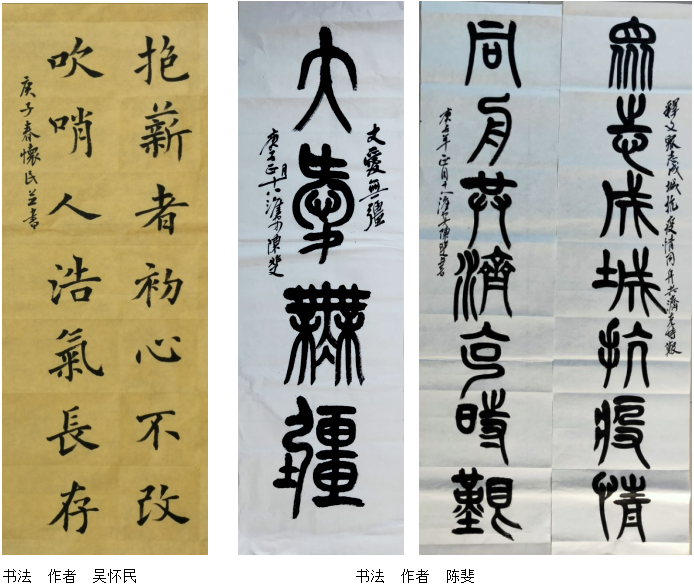 抱薪者初心不改
吹哨人浩氣長存
庚子春懷民書
大愛無疆
大愛無疆
庚子正月十八陳斐
釋文眾志成城抗疫情同舟共濟克時艱
眾志成城抗疫情
同舟共濟克時艱
庚子年正月十八陳斐書
书法 作者 吴怀民
书法 作者 陈斐